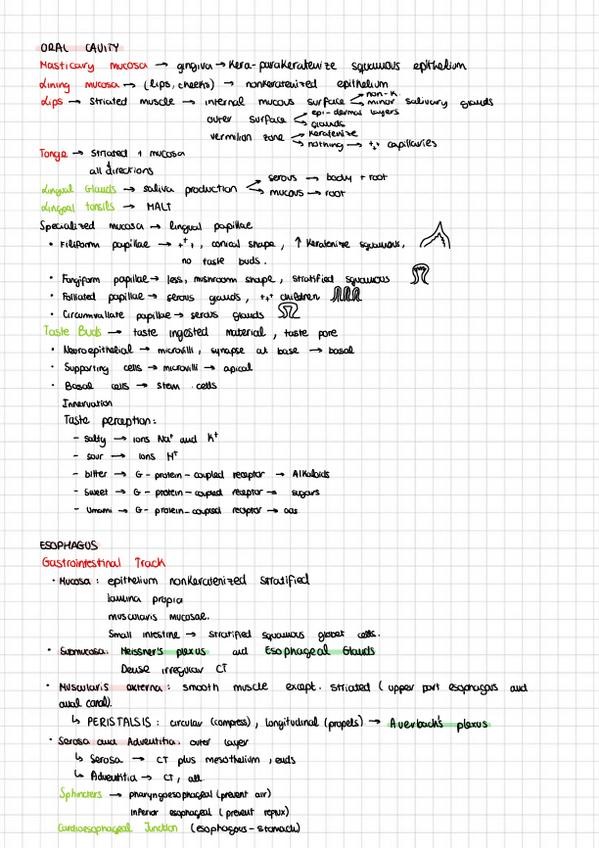 ORAL CAVITY
Masticary mucosa → gingiva → Kera-parakeratenize squamous epithelium
Lining mucosa → (lips, cheeks) → nonkeratenized epithelium
Lips → Striated muscle → internal mucous surface < non-k. minor salivary glands
outer surface < epi-dermal layers glands
vermilion zone < Keratenize nothing → ++ capillaries
Tonge → Striated 1 mucosa
all directions
Lingual Glands → saliva production < serous → body + root mucous → root
Lingual tonsils → MALT
Specialized mucosa → lingual papillae
• Filiform papillae → +++, conical shape, ↑ Keratenize squamous,
no taste buds.
• Fungiform papillae → less, mushroom shape, stratified squamous
• Foliated papillae → serous glands, +++ children
• Circumvallate papillae → serous glands
Taste Buds → taste ingested material, taste pore
• Neuroepithelial → microvilli, synapse at base → basal
• Supporting cells → microvilli → apical
• Basal cells → stem cells
Innervation
Taste perception:
- salty → ions Na⁺ and K⁺
- sour → ions H⁺
- bitter → G-protein-coupled receptor → Alkaloids
- Sweet → G-protein-coupled receptor → sugars
- Umami → G-protein-coupled receptor → aas
ESOPHAGUS
Gastrointestinal Track
• Mucosa: epithelium nonkeratenized stratified
lamina propia
muscularis mucosae.
Small intestine → stratified squamous globet cells.
• Submucosa: Meissner's plexus and Esophageal Glands
Dense irregular CT
• Muscularis externa: smooth muscle except. striated (upper part esophagus and
anal canal).
↳ PERISTALSIS: circular (compress), longitudinal (propels) → Auerbach's plexus
• Serosa and Adventitia: outer layer
↳ Serosa → CT plus mesothelium,
↳ Adventitia → CT,
Sphincters → pharyngoesophageal (prevent air)
Inferior esophageal (prevent reflux)
Cardioesophageal Junction (esophagous-stomach)